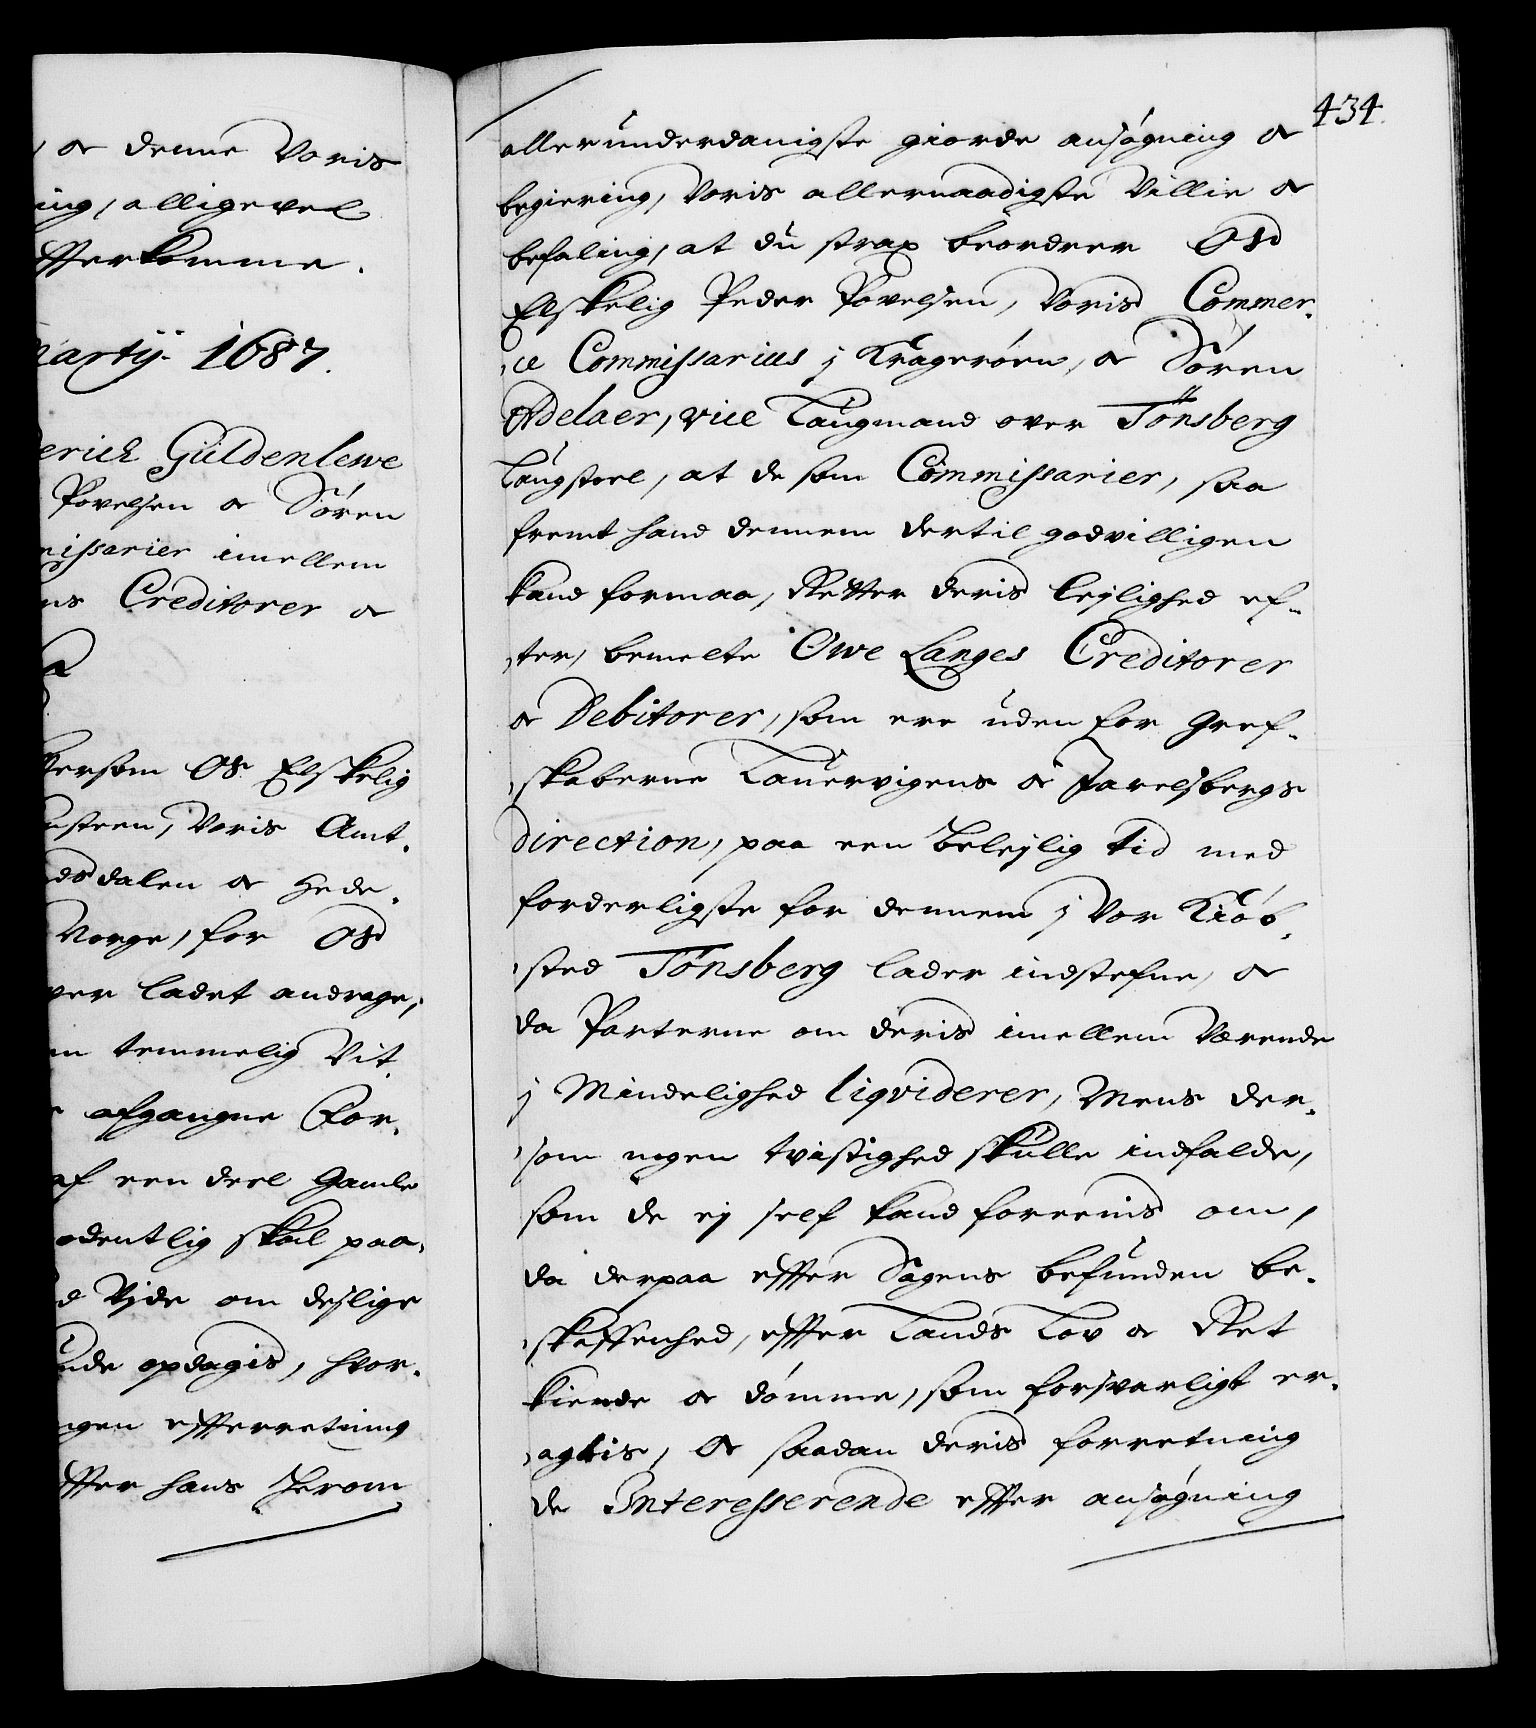 , oc denne Voris
ing, alligevel
efterkomme.
Martij 1687.
derich Güldenlewe
Povelsen oc Sören
missarier imellem
ns Creditorer oc
Eftersom Os Elskelig
steen, Voris Amt-
dsdalen oc Hede-
Norge, for Os
ver ladet andrage,
en temmelig Vit
afgangne For-
af een deel gamle
odentlig skal paa,
d Vjde om deslige
unde opdagis, hvor-
ngen efterretning
efter hans Herom
434.
allerunderdanigste giorde ansøgning oc
begiering, Voris allernaadigste Villie oc
befaling, at du strax beordrer Os
Elskelig Peder Povelsen, Voris Commer-
ce Commissarius j Kragerøen, oc Søren
Adelaer, vice Laugmand over Tönsberg
Laugstoel, at de som Commissarier, saa
fremt hand dennem dertil godvilligen
kand formaa, Retter deris leylighed ef-
ter, bemelte Owe Langes Creditorer
oc Debitorer, som ere uden for Gref-
skaberne Laurvigens oc Jarelsbergs
direction, paa een beleylig tid med
forderligste for dennem j Vor Kiøb-
sted Tönsberg lader indstefne, oc
da Parterne om deris imellem Værende
j Mindelighed liqviderer, Mens der-
som nogen tvistighed skulle indfalde,
som de ej self kand foreenis om,
da derpaa efter Sagens befunden be-
skaffenhed, efter Lands Lov oc Ret
kiende oc dømme, som forsvarligt er-
agtis, Oc saadan deris forretning
de Interesserende efter ansøgning